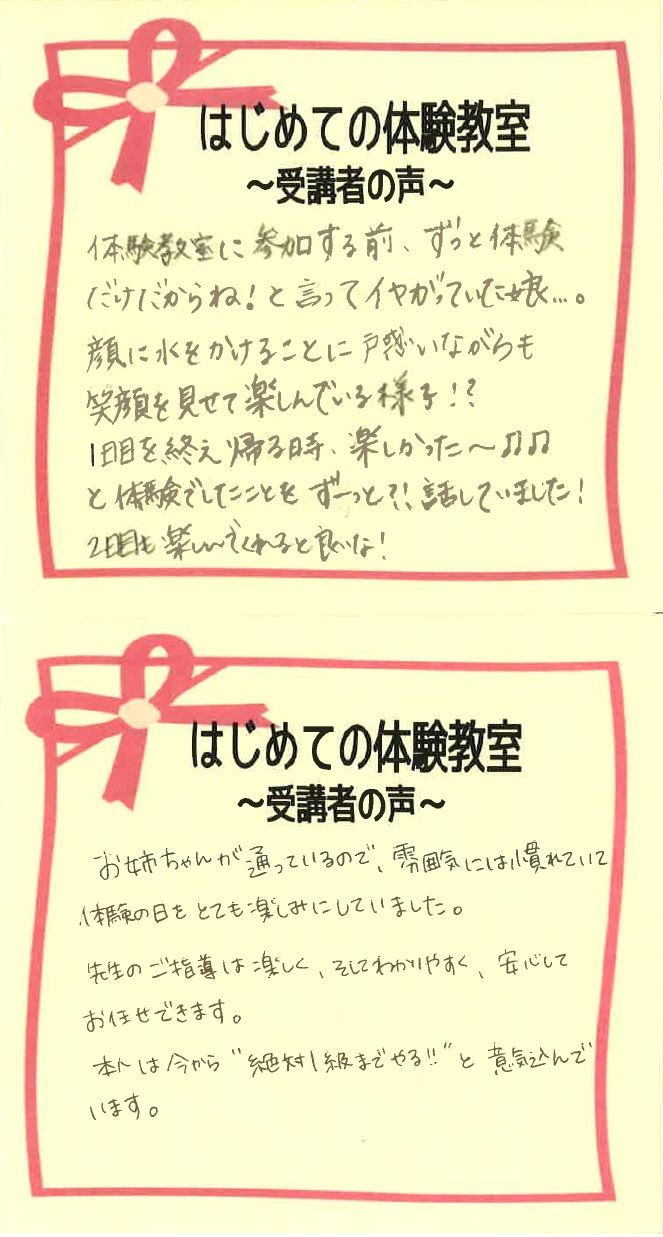 はじめての体験教室
～受講者の声～
体験教室に参加する前、ずっと体験
だけだからね!と言ってイヤがっていた娘…。
顔に水をかけることに戸惑いながらも
笑顔を見せて楽しんでいる様子!?
1日目を終え帰る時、楽しかった～♫♫
と体験でしたことをずーっと?!話していました!
2日目も楽しんでくれると良いな!
はじめての体験教室
～受講者の声～
お姉ちゃんが通っているので、雰囲気には慣れていて
体験の日をとても楽しみにしていました。
先生のご指導は楽しく、そしてわかりやすく、安心して
お任せできます。
本人は今から"絶対1級までやる!!"と意気込んで
います。